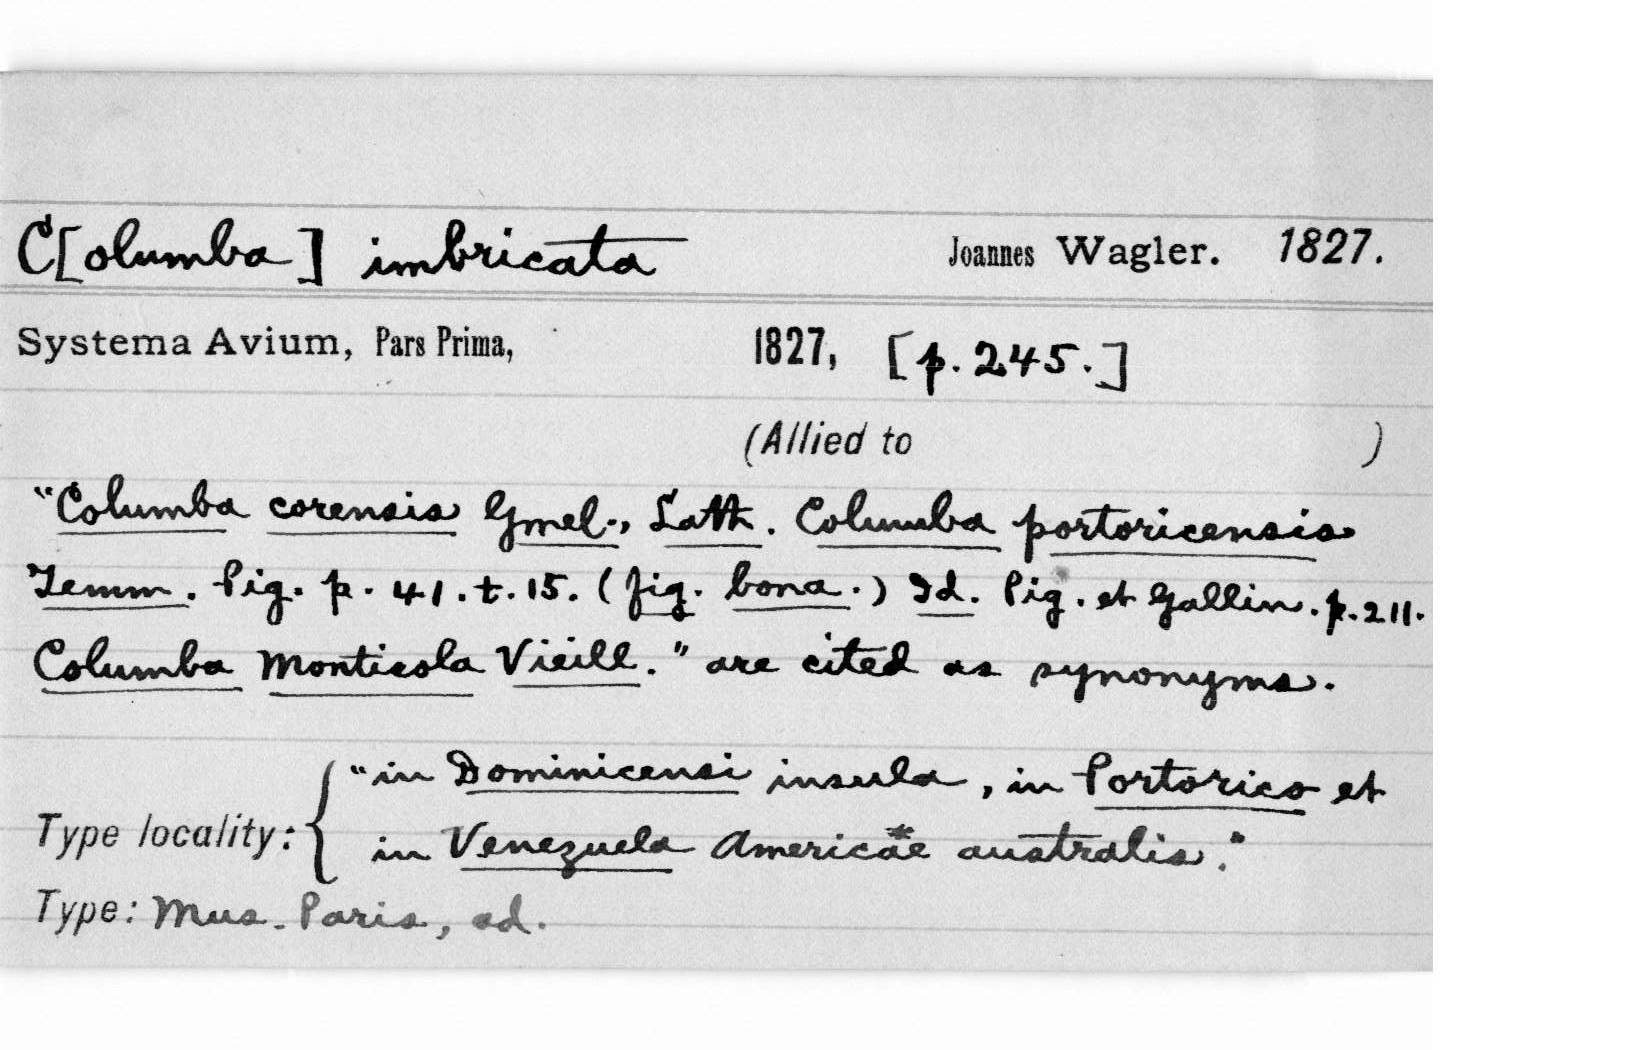 C[olumba] imbricata Joannes Wagler. 1827.
Systema Avium, Pars Prima, 1827, [p. 245.]
(Allied to )
"Columba corensis Gmel., Lath. Columba portoricensis
Temm. Pig. p. 41. t. 15. (fig. bona.) Id. Pig. et Gallin. p. 211.
Columba monticola Vieill." are cited as synonyms.
"in Dominicensi insula, in Portorico et
Type locality: { in Venezuela Americae australis."
Type: Mus. Paris, ad.